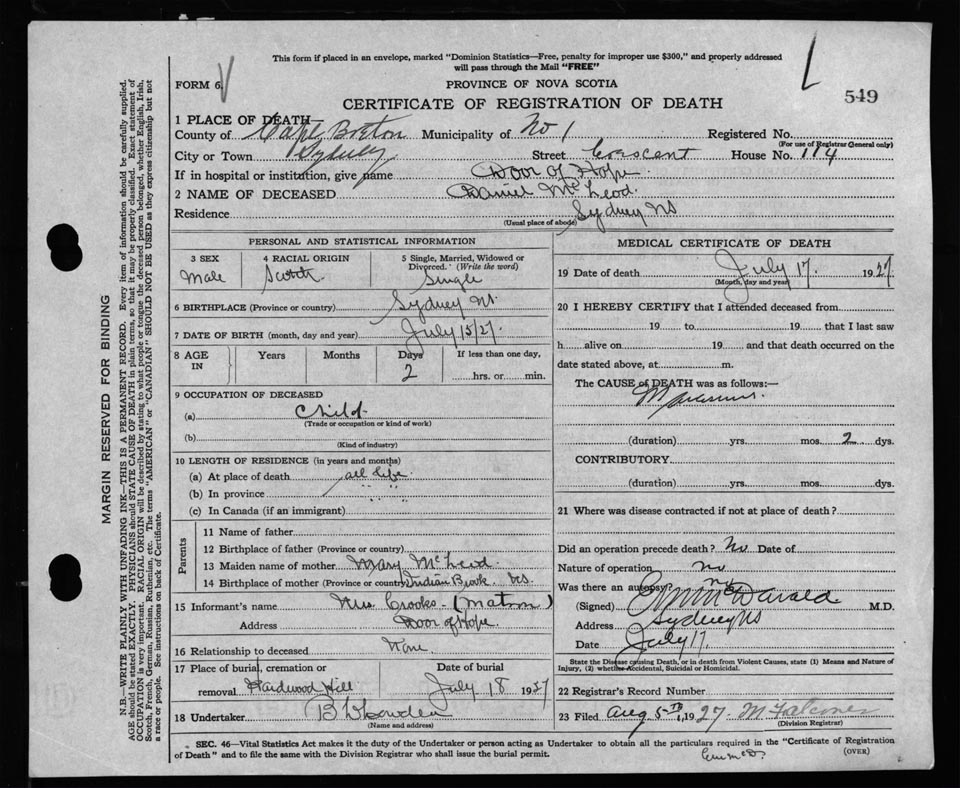 This form if placed in an envelope, marked "Dominion Statistics—Free, penalty for improper use $300," and properly addressed
will pass through the Mail "FREE"
FORM 6.
PROVINCE OF NOVA SCOTIA
549
CERTIFICATE OF REGISTRATION OF DEATH
1 PLACE OF DEATH
County of Cape Breton Municipality of No 1 Registered No.
(For use of Registrar General only)
City or Town Sydney Street Crescent House No. 114
If in hospital or institution, give name Door of Hope
2 NAME OF DECEASED Daniel McLeod
Residence Sydney NS
(Usual place of abode)
PERSONAL AND STATISTICAL INFORMATION
3 SEX 4 RACIAL ORIGIN 5 Single, Married, Widowed or
Divorced. (Write the word)
Male Scotch Single
6 BIRTHPLACE (Province or country) Sydney NS
7 DATE OF BIRTH (month, day and year) July 15/27
8 AGE IN Years Months Days If less than one day,
2 hrs. or min.
9 OCCUPATION OF DECEASED
(a) Child
(Trade or occupation or kind of work)
(b)
(Kind of industry)
10 LENGTH OF RESIDENCE (in years and months)
(a) At place of death all life
(b) In province " "
(c) In Canada (if an immigrant)
Parents
11 Name of father
12 Birthplace of father (Province or country)
13 Maiden name of mother Mary McLeod
14 Birthplace of mother (Province or country) Indian Brook NS
15 Informant's name Mrs Crooks - (Matron)
Address Door of Hope
16 Relationship to deceased None
17 Place of burial, cremation or Date of burial
removal Hardwood Hill July 18 1927
18 Undertaker
(Name and address)
MEDICAL CERTIFICATE OF DEATH
19 Date of death July 17 1927
(Month, day and year)
20 I HEREBY CERTIFY that I attended deceased from
19 to 19 that I last saw
h alive on 19 and that death occurred on the
date stated above, at m.
The CAUSE of DEATH was as follows:—
(duration) yrs. mos. 2 dys.
CONTRIBUTORY
(duration) yrs. mos. dys.
21 Where was disease contracted if not at place of death?
Did an operation precede death? No Date of
Nature of operation no
Was there an autopsy? no
(Signed) McDonald M.D.
Address Sydney NS
Date July 17
State the Disease causing Death, or in death from Violent Causes, state (1) Means and Nature of
Injury, (2) whether Accidental, Suicidal or Homicidal.
22 Registrar's Record Number
23 Filed Aug 5th, 1927. M Falconer
(Division Registrar)
SEC. 46—Vital Statistics Act makes it the duty of the Undertaker or person acting as Undertaker to obtain all the particulars required in the "Certificate of Registration
of Death" and to file the same with the Division Registrar who shall issue the burial permit.
(OVER)
MARGIN RESERVED FOR BINDING
N.B.—WRITE PLAINLY WITH UNFADING INK—THIS IS A PERMANENT RECORD. Every item of information should be carefully supplied.
AGE should be stated EXACTLY. PHYSICIANS should STATE CAUSE OF DEATH in plain terms, so that it may be properly classified. Exact statement of
OCCUPATION is very important. RACIAL ORIGIN will be described by stating to what people or tongue the deceased person belonged, whether English, Irish,
Scotch, French, German, Russian, Ruthenian, etc. The terms "AMERICAN" or "CANADIAN" SHOULD NOT BE USED as they express citizenship but not
a race or people. See instructions on back of Certificate.